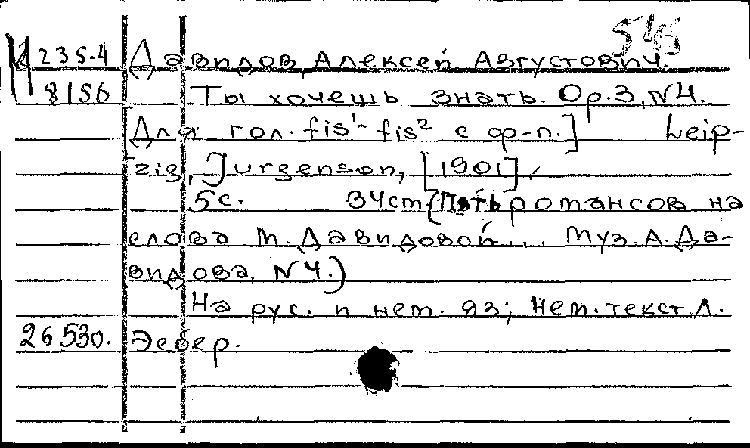 515
Ц 235-4 Давидов, Алексей Августович.
8156 Ты хочешь знать. Op.3, N4.
[Для гол. fis¹-fis² с ф-п.] Leip-
zig, Jurgenson, [1901].
5с. 34cm (Пять романсов на
слова М. Давидовой... Муз. А. Да-
видова, N4.)
На рус. и нем. яз; нем. текст Л.
26530. Эсбер.